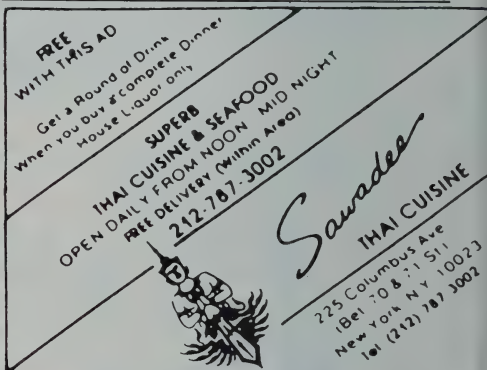 FREE
WITH THIS AD
Get a Round of Drink
When you buy a complete Dinner
House Liquor only
SUPERB
THAI CUISINE & SEAFOOD
OPEN DAILY FROM NOON MID NIGHT
FREE DELIVERY (Within Area)
212-787-3002
Sawadee
THAI CUISINE
225 Columbus Ave
(Bet 70 & 71 St)
New York N Y 10023
Tel (212) 787 3002